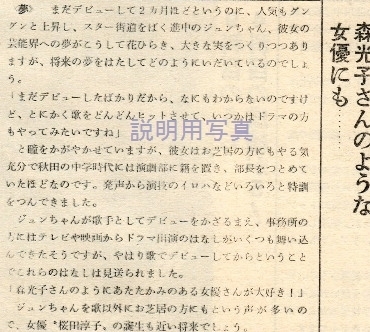 森光子さんのような
女優にも………
〈夢〉 まだデビューして2カ月ほどというのに、人気もグン
グンと上昇し、スター街道をばく進中のジュンちゃん。彼女の
芸能界への夢がこうして花ひらき、大きな実をつくりつつあり
ますが、将来の夢をはたしてどのようにいだいているのでしょ
う。
「まだデビューしたばかりだから、なにもわからないのですけ
ど、とにかく歌をどんどんヒットさせて、いつかはドラマの方
もやってみたいですね」
と瞳をかがやかせていますが、彼女はお芝居の方にもやる気
充分で秋田の中学時代には演劇部に籍を置き、部長をつとめて
いたほどなのです。発声から演技のイロハなどいろいろと特訓
をつんできました。
ジュンちゃんが歌手としてデビューをかざるまえ、事務所の
方にはテレビや映画からドラマ出演のはなしがいくつも舞い込
んできたそうですが、やはり歌でデビューしてからということ
でこれらのはなしは見送られました。
「森光子さんのようにあたたかみのある女優さんが大好き！」
ジュンちゃんを歌以外にお芝居の方にもという声が多いの
で、女優〝桜田淳子〟の誕生も近い将来でしょう。
説明用写真